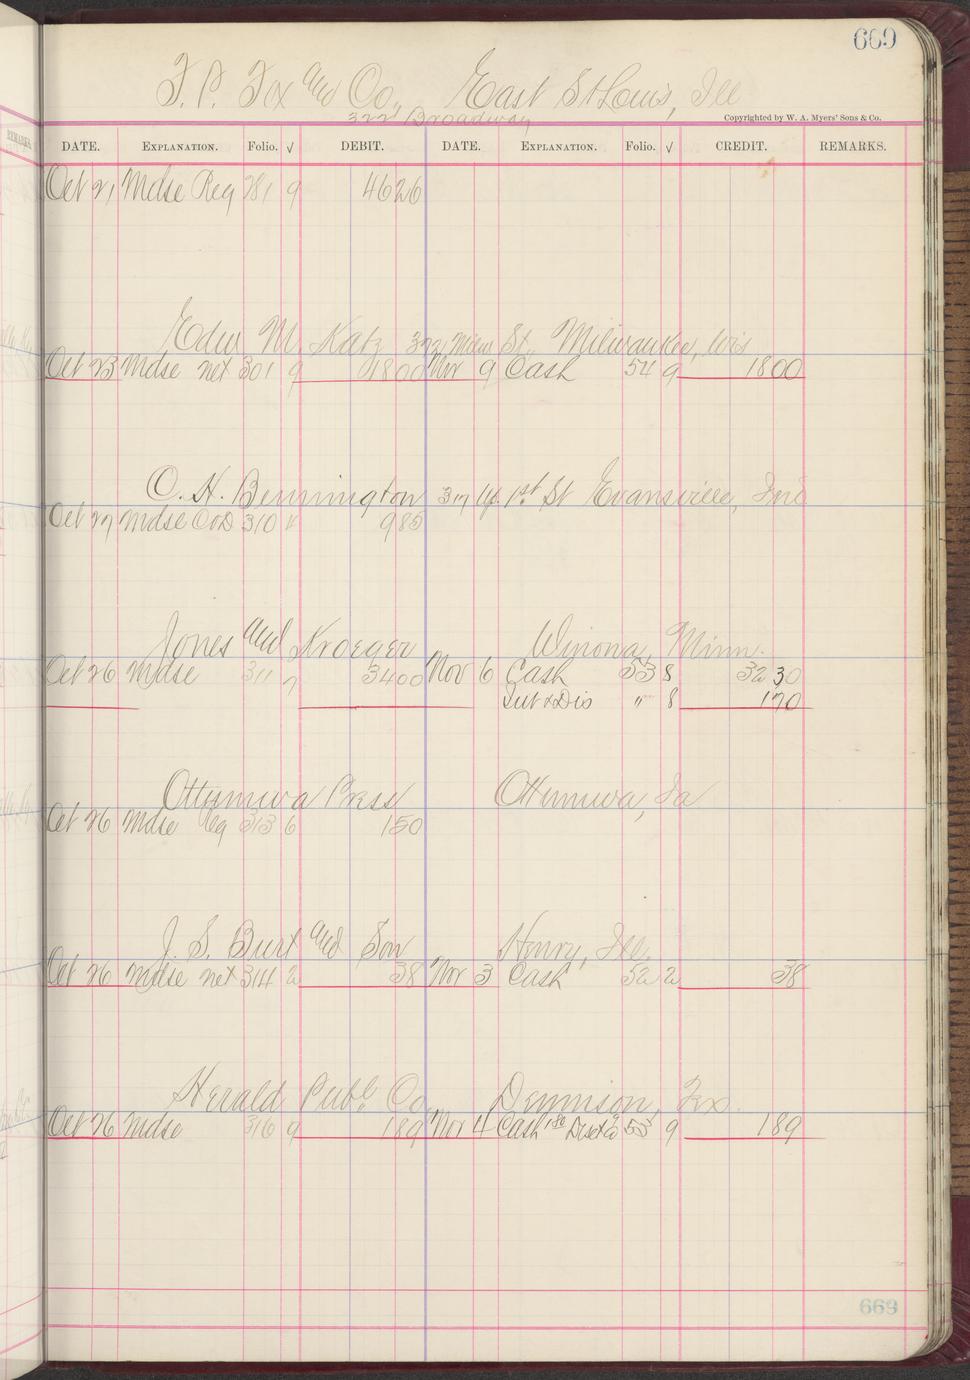 669
F. P. Fox and Co., East St Louis, Ill
322 Broadway
Copyrighted by W. A. Myers' Sons & Co.
DATE. EXPLANATION. Folio. √ DEBIT. DATE. EXPLANATION. Folio. √ CREDIT. REMARKS.
Oct 21 Mdse Reg 281 9 4626
Edw M. Katz 322 Milw St., Milwaukee, Wis
Oct 23 Mdse net 301 9 1800 Nov 9 Cash 54 9 1800
C. H. Bennington 317 Up. 1st St Evansville, Ind
Oct 27 Mdse CoD 310 985
Jones and Kroeger Winona, Minn.
Oct 26 Mdse 311 7 3400 Nov 6 Cash 53 8 3230
& Dis " 8 170
Ottumwa Press Ottumwa, Ia
Oct 26 Mdse Reg 313 6 150
J. S. Burt and Son Henry, Ill.
Oct 26 Mdse net 314 2 38 Nov 3 Cash 52 2 38
Herald Publ. Co. Dennison, Tex.
Oct 26 Mdse 316 9 189 Nov 4 Cash 53 9 189
669